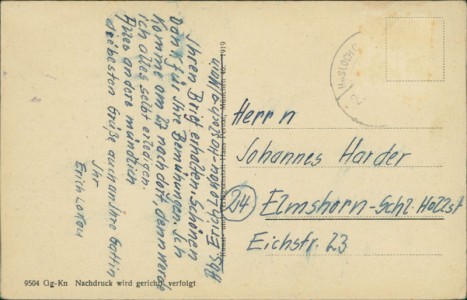 Ihren Brief erhalten Schönen
Dank für Ihre Bemühungen. Ich
komme am 27 nach dort, dann werde
ich alles selbst erledigen
Alles andere mündlich
die besten Grüße auch an Ihre Gattin
Ihr
Erich
Herrn
Johannes Harder
24 Elmshorn-Schl. Holst
Eichstr. 23
9504 Og-Kn Nachdruck wird gerichtl. verfolgt